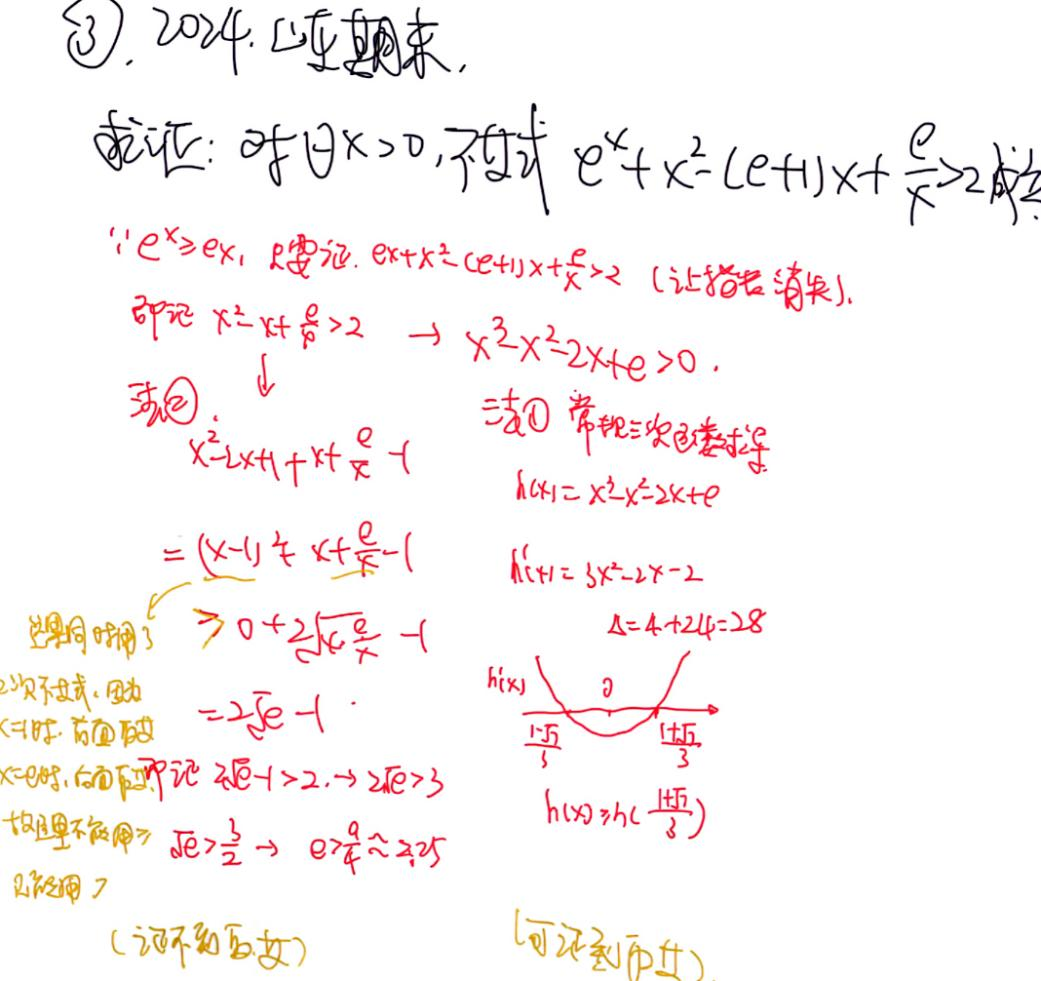 ③. 2024. 山东期末.
求证: 对∀x>0, 不等式 e^x+x²-(e+1)x+e/x>2成立.
∵e^x≥ex, 只要证. ex+x²-(e+1)x+e/x>2 (让指数消失).
即证 x²-x+e/x>2 → x³-x²-2x+e>0.
↓
法②.
x²-2x+1+x+e/x-1
=(x-1)²+x+e/x-1
>0+2√(x·e/x)-1
=2√e-1.
即证 2√e-1>2.→2√e>3
√e>3/2 → e>9/4≈2.25
这里同时用了
2次不等式.因为
x=1时.前面取等
x=e时,后面取等.
故这里不能用≥
只能用>
(证不到取等)
法① 常规三次函数求导
h(x)=x³-x²-2x+e
h'(x)=3x²-2x-2
Δ=4+24=28
h'(x) 0
(1-√7)/3 (1+√7)/3
h(x)≥h((1+√7)/3)
(可证到取等).